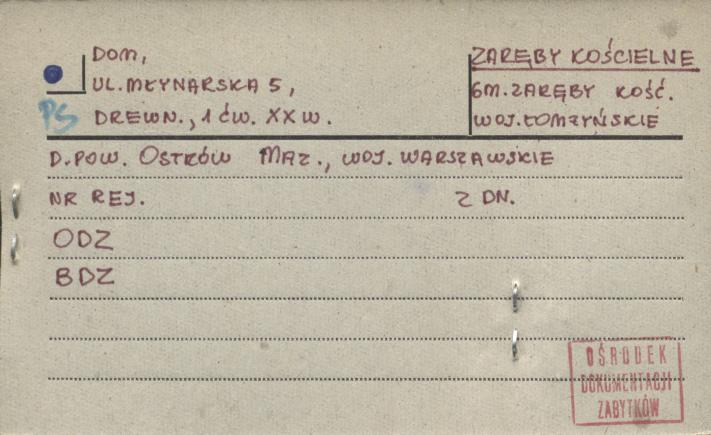 DOM,
UL. MŁYNARSKA 5,
PS DREWN., 1 ĆW. XX W.
ZARĘBY KOŚCIELNE
GM. ZARĘBY KOŚĆ.
WOJ. ŁOMŻYŃSKIE
D. POW. OSTRÓW MAZ., WOJ. WARSZAWSKIE
NR REJ. Z DN.
ODZ
BDZ
OŚRODEK
DOKUMENTACJI
ZABYTKÓW